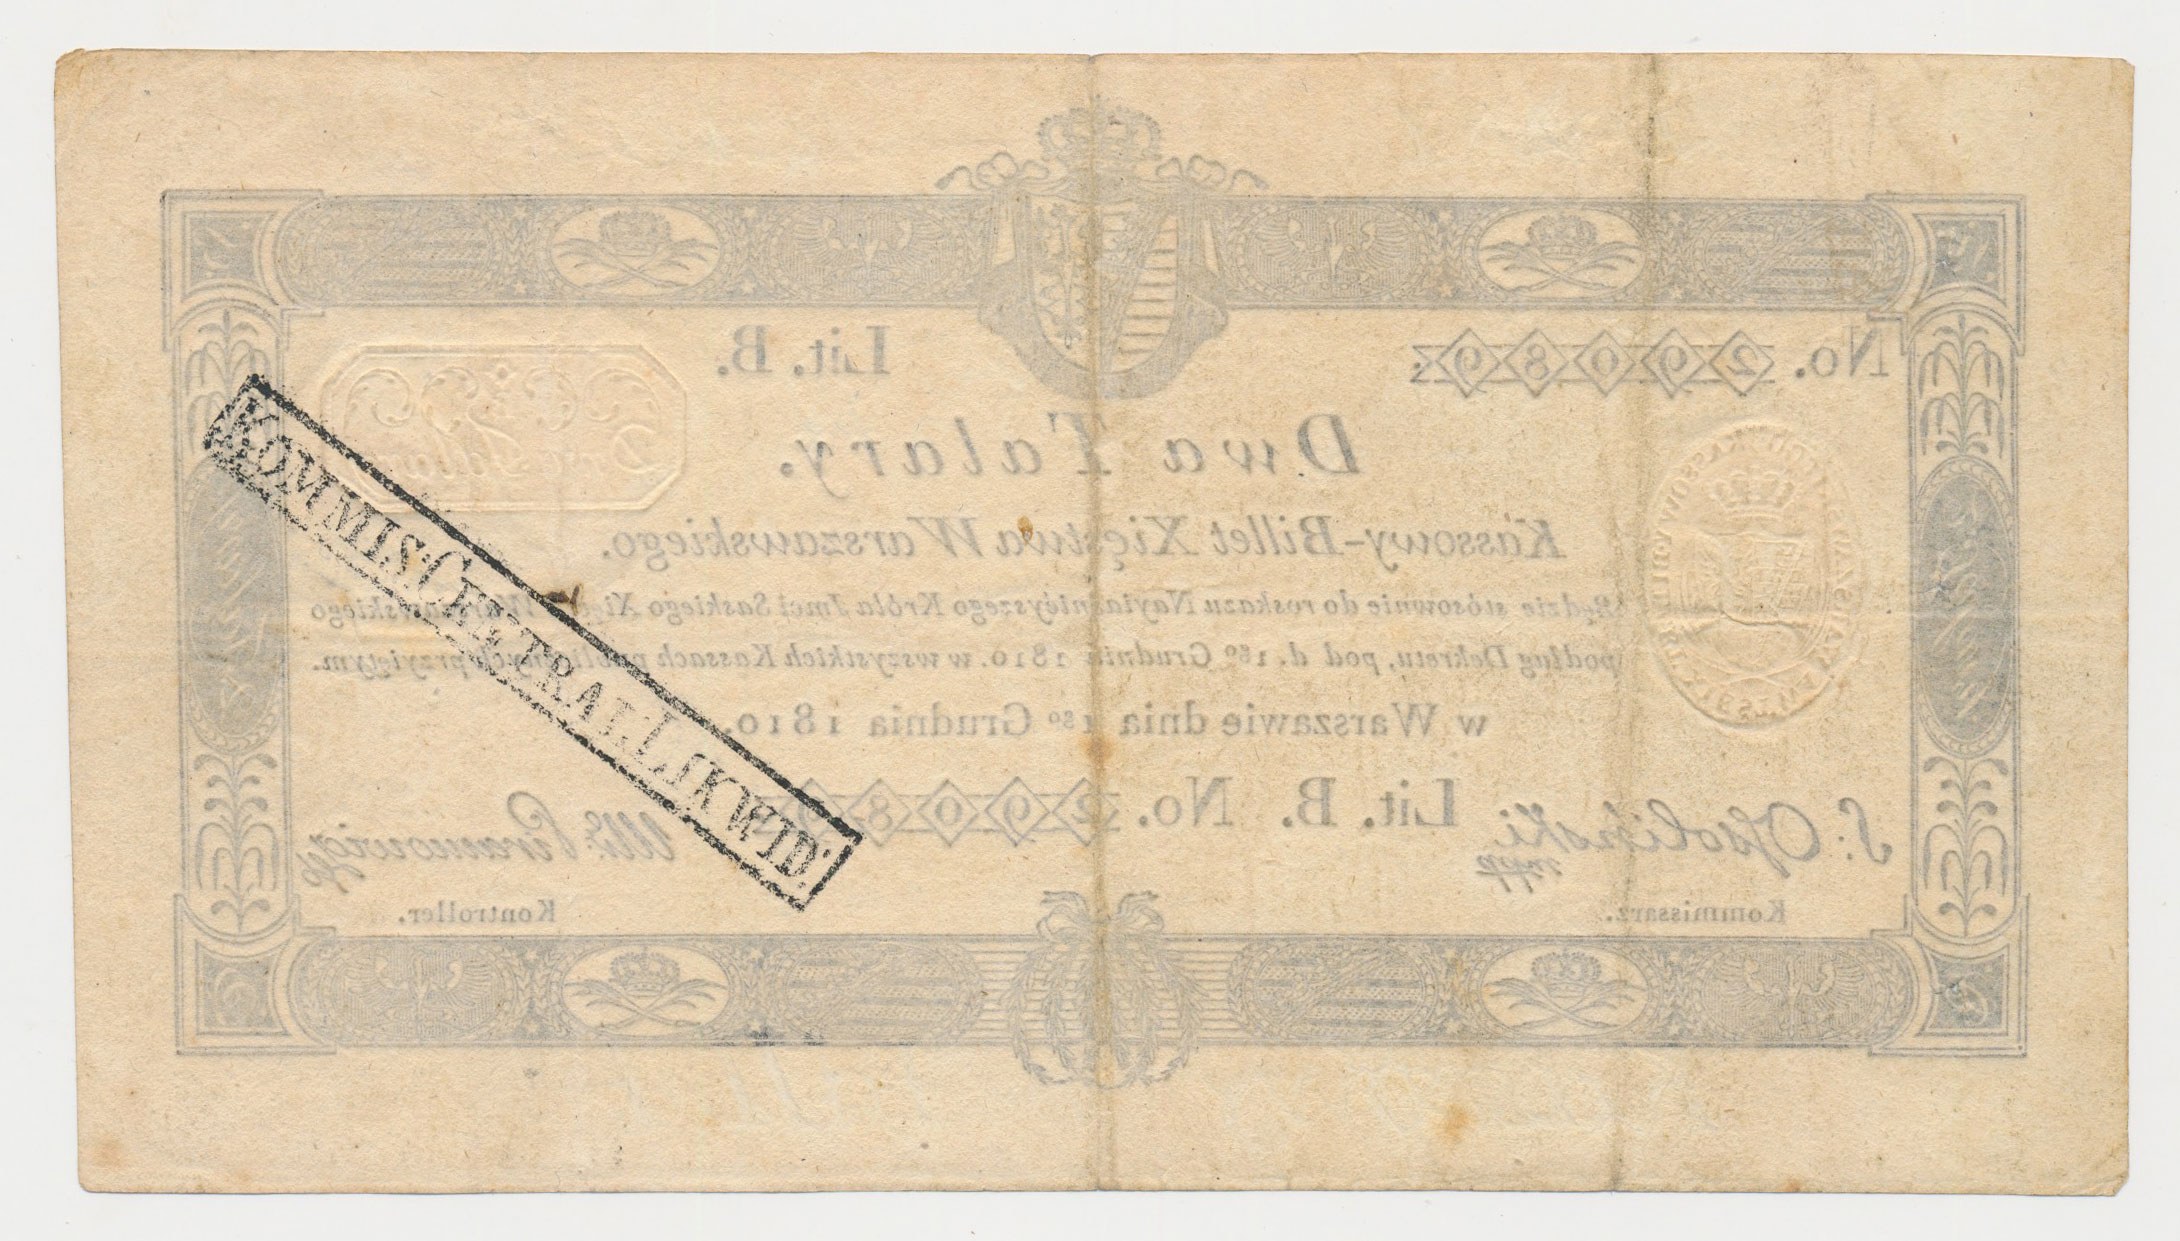 No. 29089
Lit. B.
Dwa Talary.
Kassowy-Billet Xięstwa Warszawskiego.
Będzie stósownie do roskazu Nayiaśnieyszego Króla Jmci Saskiego Xięcia Warszawskiego
podług Dekretu, pod d. 1go Grudnia 1810. w wszystkich Kassach publicznych przyiętym.
w Warszawie dnia 1go Grudnia 1810.
Lit. B. No. 29089
S: Ossoliński mpp
Kommissarz.
Kontroller.
KOMMIS: CENTRAL: LIKWID: